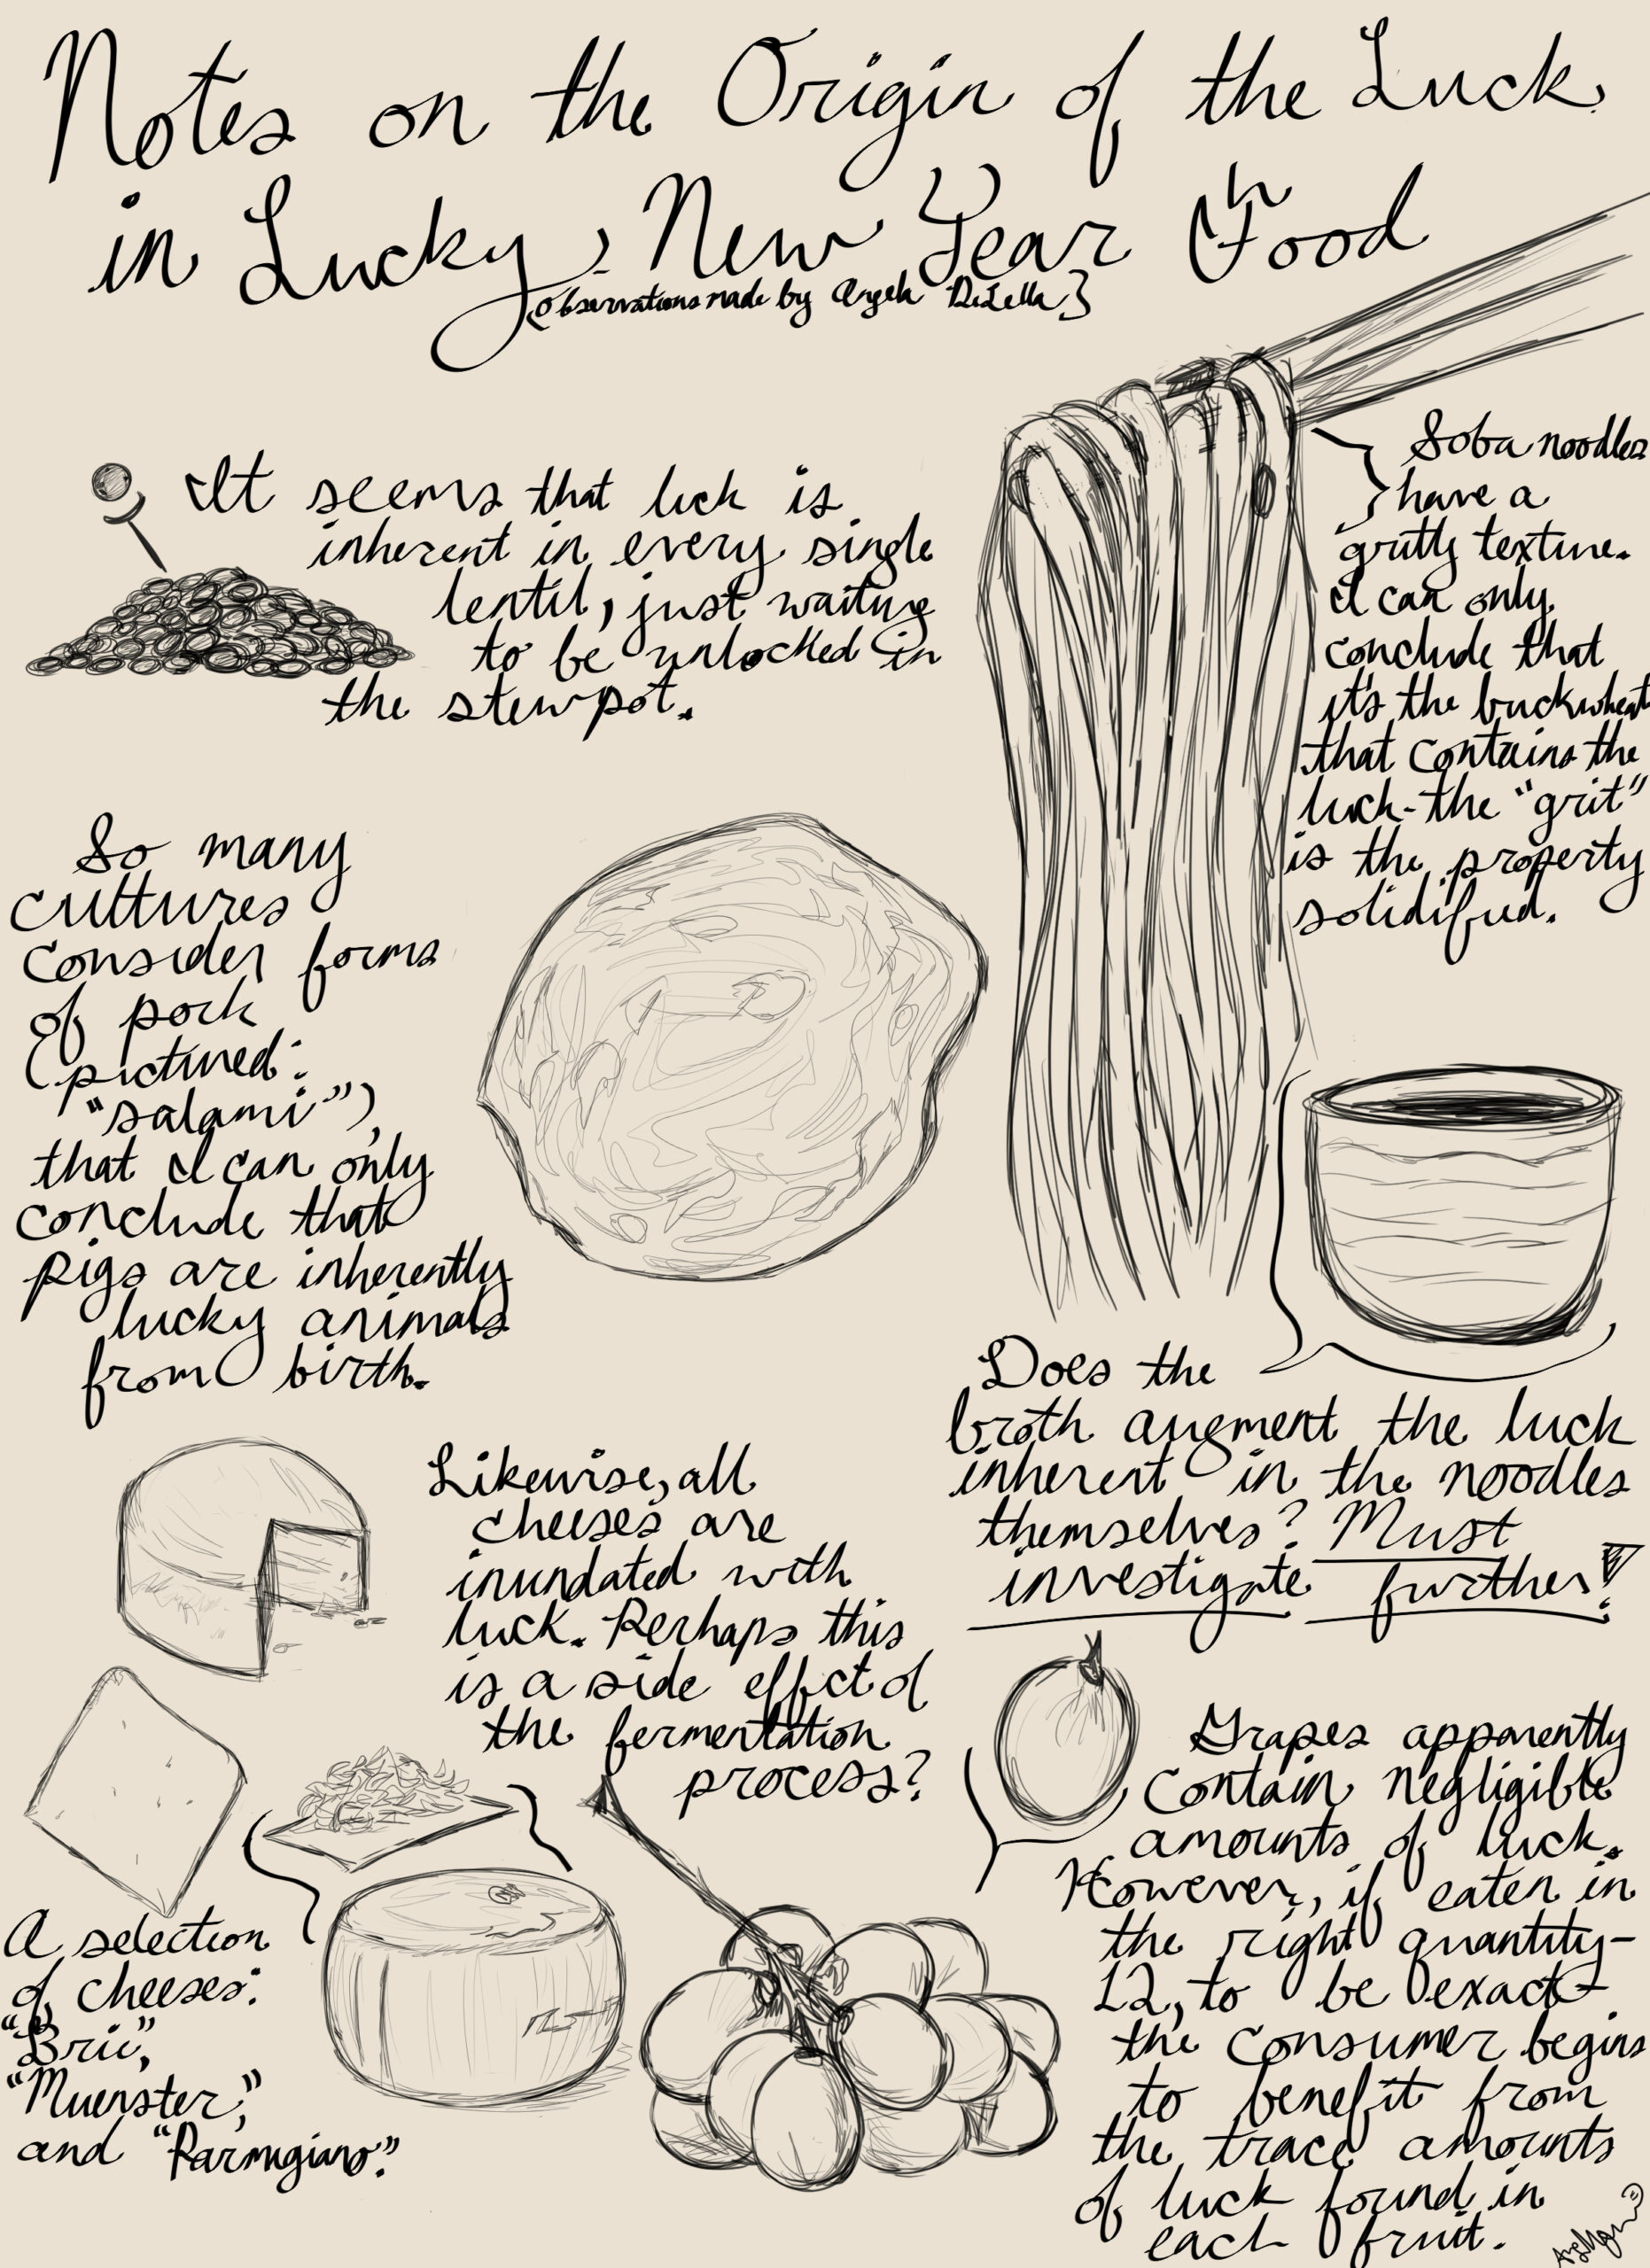 Notes on the Origin of the Luck
in Lucky New Year Food
{Observations made by Angela DeZella}
It seems that luck is
inherent in every single
lentil, just waiting
to be unlocked in
the stewpot.
Soba noodles
have a
gritty texture.
I can only
conclude that
it's the buckwheat
that contains the
luck-the "grit"
is the property
solidified.
So many
cultures
consider forms
of pork
(pictured:
"salami"),
that I can only
conclude that
pigs are inherently
lucky animals
from birth.
Does the
broth augment the luck
inherent in the noodles
themselves? Must
investigate further!
Likewise, all
cheeses are
inundated with
luck. Perhaps this
is a side effect of
the fermentation
process?
A selection
of cheeses:
"Brie",
"Muenster,"
and "Parmigiano."
Grapes apparently
contain negligible
amounts of luck.
However, if eaten in
the right quantity-
12, to be exact-
the consumer begins
to benefit from
the trace amounts
of luck found in
each fruit.